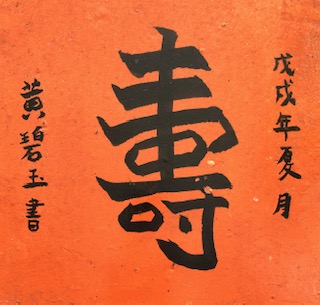 戊戌年夏月
壽
黃碧玉書